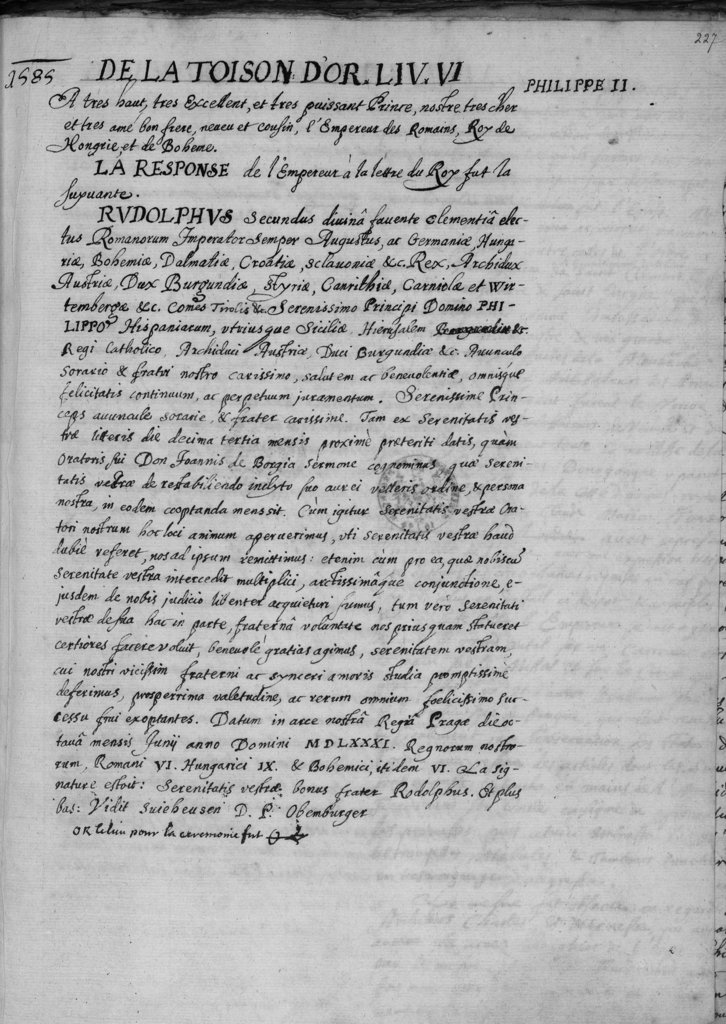 227
1585 DE LA TOISON D'OR. LIV. VI PHILIPPE II.
A tres haut, tres Excellent, et tres puissant Prince, nostre tres cher
et tres amé bon frere, neveu et cousin, l'Empereur des Romains, Roy de
Hongrie, et de Boheme.
LA RESPONSE de l'Empereur à la lettre du Roy fut la
suyuante.
RVDOLPHVS Secundus divinâ favente Clementiâ elec-
tus Romanorum Imperator Semper Augustus, ac Germaniæ, Hunga-
riæ, Bohemiæ, Dalmatiæ, Croatiæ, Sclavoniæ &c. Rex, Archidux
Austriæ, Dux Burgundiæ, Styriæ, Carinthiæ, Carniolæ et Wir-
tembergæ &c. Comes Tirolis &c. Serenissimo Principi Domino PHI-
LIPPO Hispaniarum, vtriusque Siciliæ, Hierusalem &c.
Regi Catholico, Archiduci Austriæ, Duci Burgundiæ &c. Avunculo
Sorario & fratri nostro carissimo, salutem ac benevolentiæ, omnisque
felicitatis continuum, ac perpetuum juramentum. Serenissime Prin-
ceps avuncule sorarie, & frater carissime. Tam ex Serenitatis ves-
træ litteris die decima tertia mensis proximè preteriti datis, quam
Oratoris sui Don Joannis de Borgia sermone cognovimus, quæ Sereni-
tatis vestræ de restabiliendo inclyto suo aurei velleris ordine, & persona
nostra, in eodem cooptanda mens sit. Cùm igitur Serenitatis vestræ Ora-
tori nostrum hoc loci animum aperuerimus, vti Serenitatis vestræ haud
dubiè referet, nos ad ipsum remittimus: etenim cùm pro ea, quæ nobiscū
Serenitate vestra intercedit multiplici, arctissimaque conjunctione, e-
jusdem de nobis judicio libenter acquieturi simus, tum vero Serenitati
vestræ de sua hac in parte, fraternâ voluntate nos priusquam statueret
certiores facere voluit, benevolè gratias agimus, serenitatem vestram,
cui nostri vicissim fraterni ac synceri amoris studia promptissimè
deferimus, prosperrima valetudine, ac rerum omnium foelicissimo suc-
cessu frui exoptantes. Datum in arce nostrâ Regiâ Pragæ die oc-
tavâ mensis Junij anno Domini MDLXXXI. Regnorum nostro-
rum, Romani VI. Hungarici IX. & Bohemici, itidem VI. La sig-
nature estoit: Serenitatis vestræ bonus frater Rodolphus. Et plus
bas: Vidit Suieheusen D. P. Obemburger
OR le lieu pour la ceremonie fut